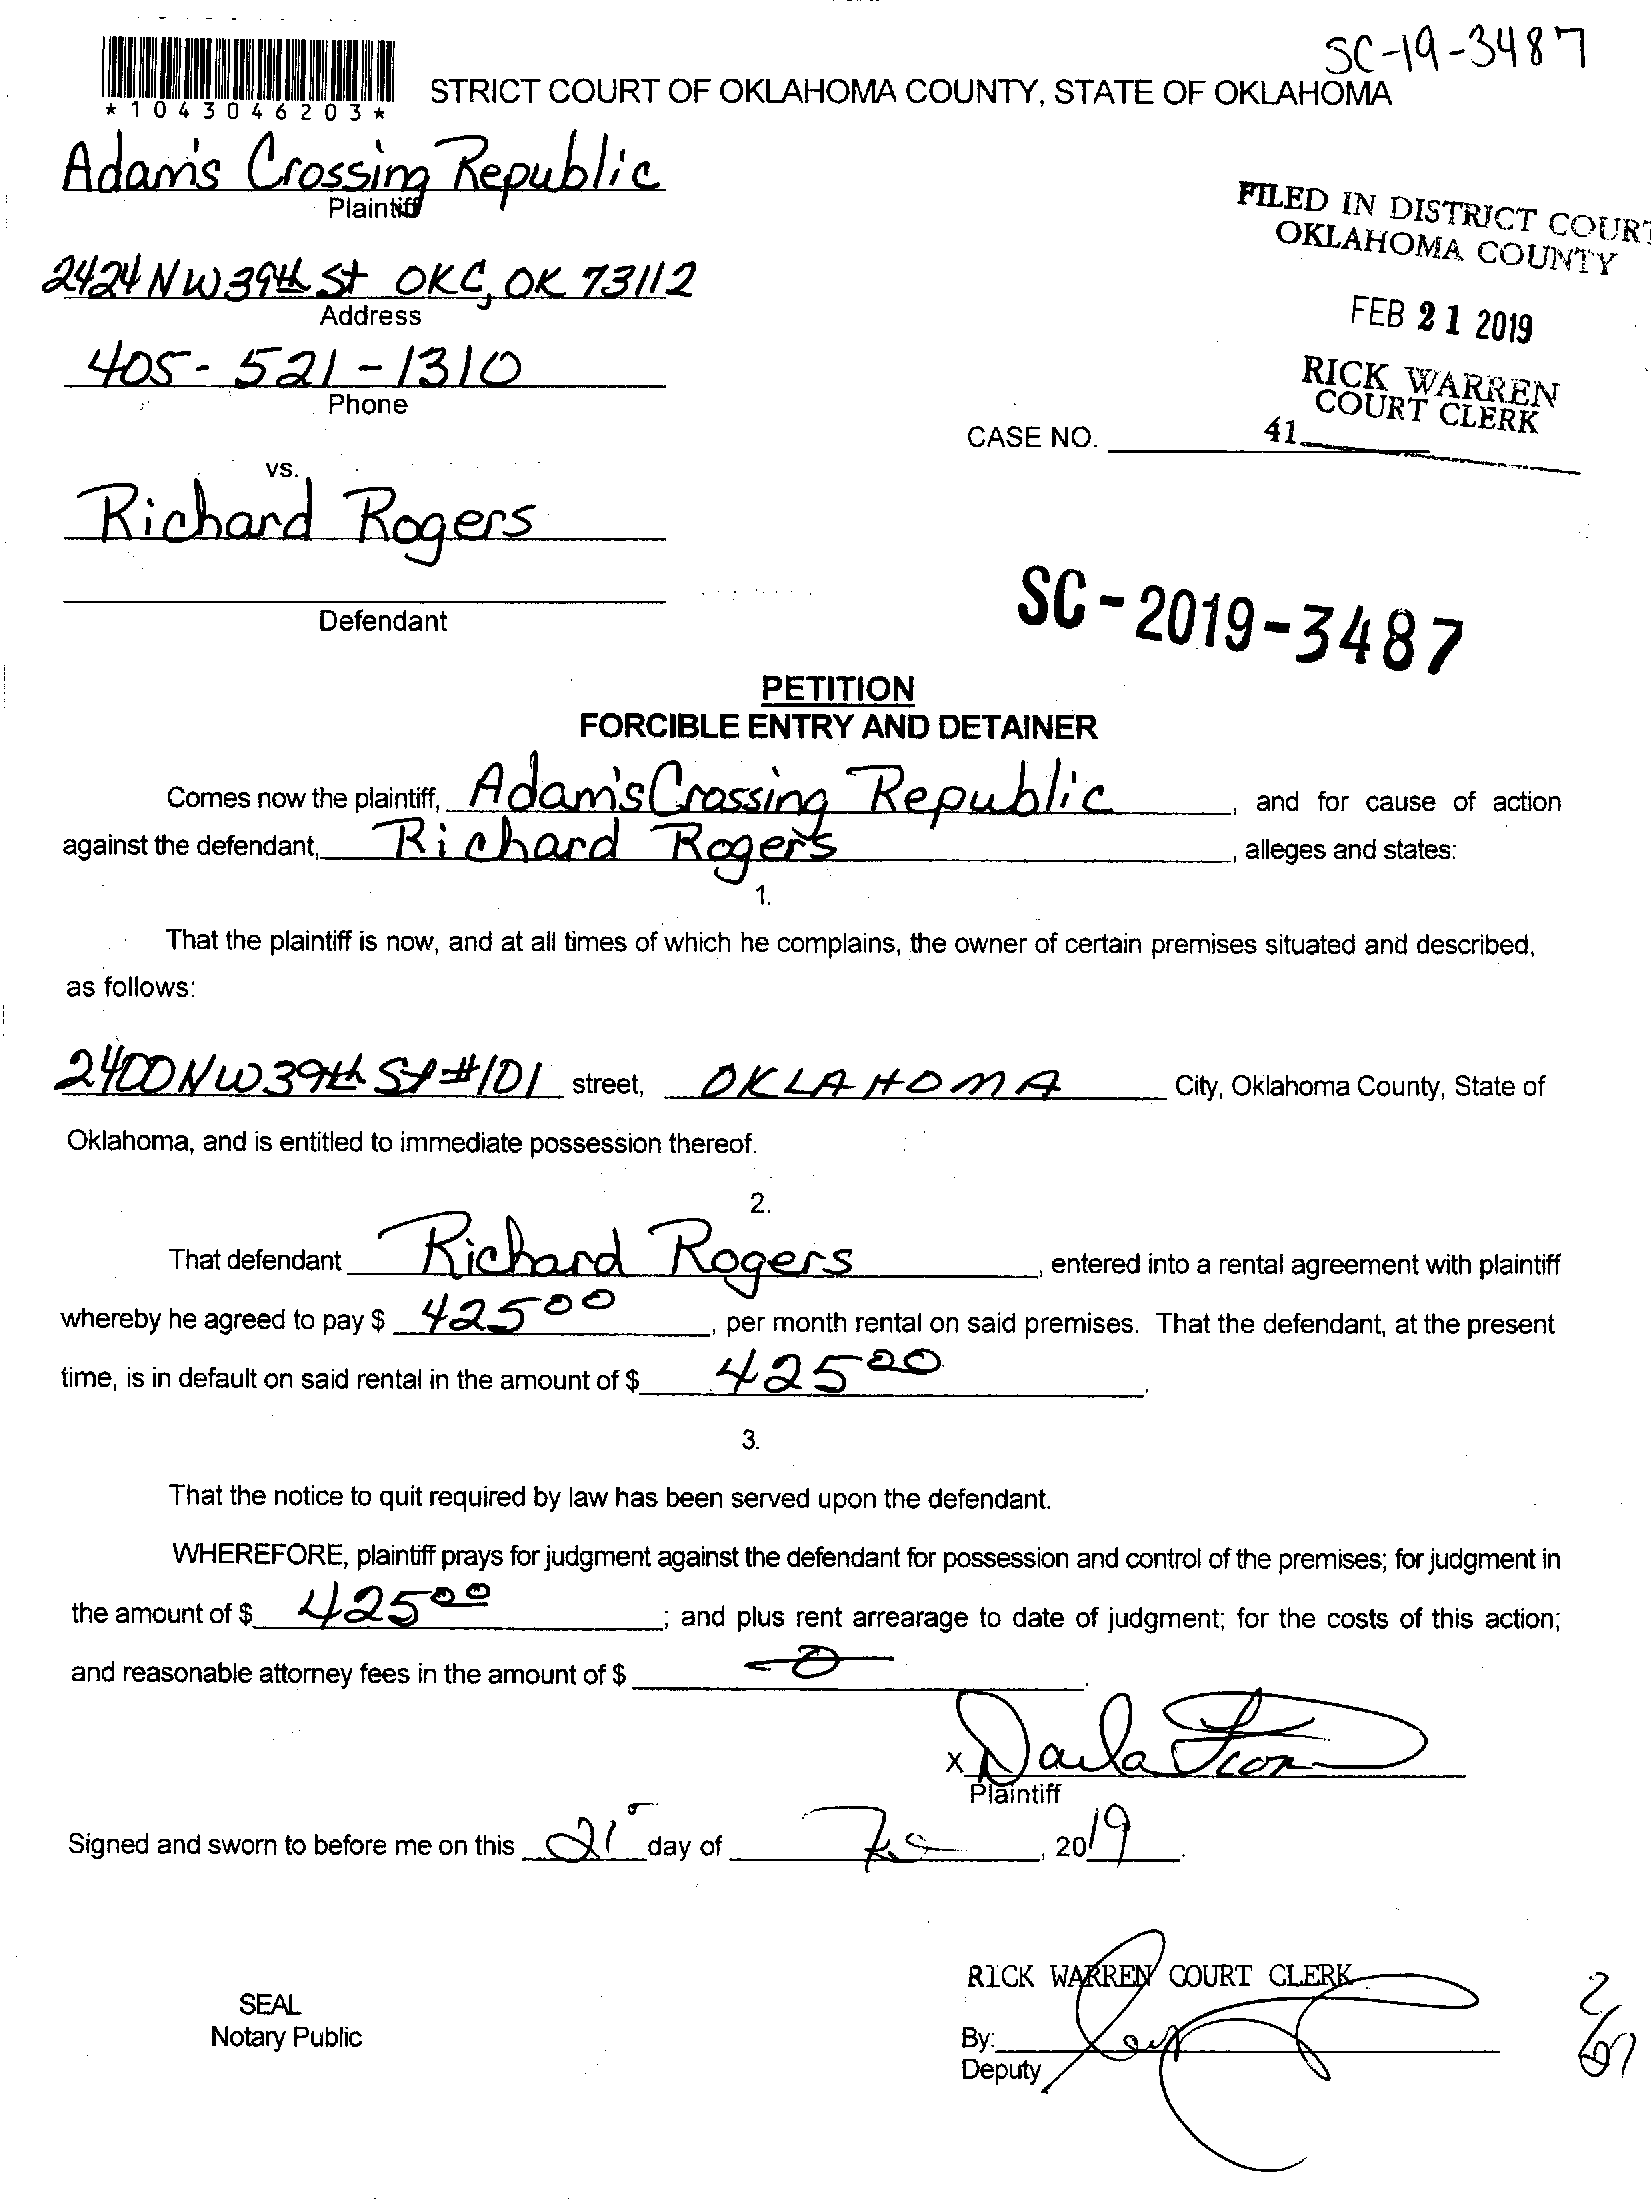 SC-19-3487
*1043046203*
STRICT COURT OF OKLAHOMA COUNTY, STATE OF OKLAHOMA
Adam's Crossing Republic
Plaintiff
FILED IN DISTRICT COURT
OKLAHOMA COUNTY
2424 NW 39th St OKC, OK 73112
Address
FEB 21 2019
405-521-1310
Phone
RICK WARREN
COURT CLERK
CASE NO.
41
vs.
Richard Rogers
Defendant
SC-2019-3487
PETITION
FORCIBLE ENTRY AND DETAINER
Comes now the plaintiff, Adam's Crossing Republic, and for cause of action
against the defendant, Richard Rogers, alleges and states:
1.
That the plaintiff is now, and at all times of which he complains, the owner of certain premises situated and described,
as follows:
2400 NW 39th St #101 street, OKLAHOMA City, Oklahoma County, State of
Oklahoma, and is entitled to immediate possession thereof.
2.
That defendant Richard Rogers, entered into a rental agreement with plaintiff
whereby he agreed to pay $ 425 00, per month rental on said premises. That the defendant, at the present
time, is in default on said rental in the amount of $ 425 00.
3.
That the notice to quit required by law has been served upon the defendant.
WHEREFORE, plaintiff prays for judgment against the defendant for possession and control of the premises; for judgment in
the amount of $ 425 00; and plus rent arrearage to date of judgment; for the costs of this action;
and reasonable attorney fees in the amount of $ -0-.
x Darla
Plaintiff
Signed and sworn to before me on this 21 day of , 2019.
RICK WARREN COURT CLERK
SEAL
Notary Public
By:
Deputy